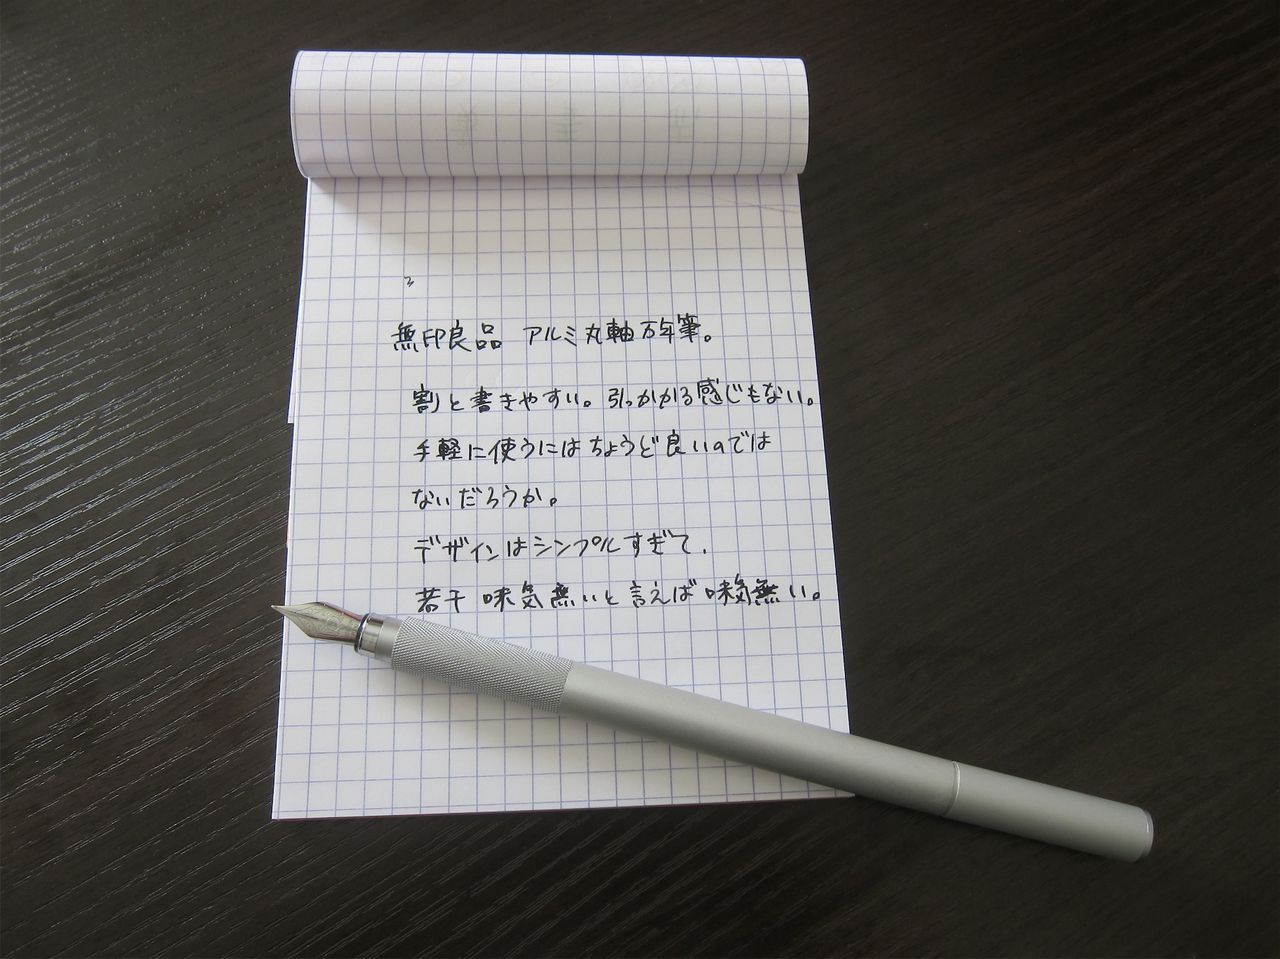 無印良品 アルミ丸軸万年筆。
割と書きやすい。引っかかる感じもない。
手軽に使うにはちょうど良いのでは
ないだろうか。
デザインはシンプルすぎて、
若干 味気無いと言えば味気無い。